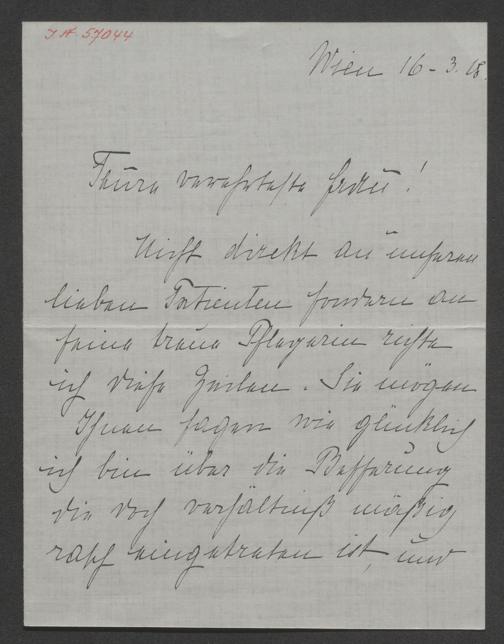 J.N. 57044
Wien 16-3. 18.
Teure verehrteste Frau!
Nicht direkt an unseren
lieben Patienten sondern an
seine treue Pflegerin richte
ich diese Zeilen. Sie mögen
Ihnen sagen wie glücklich
ich bin über die Besserung
die doch verhältniß mäßig
rasch eingetreten ist, und